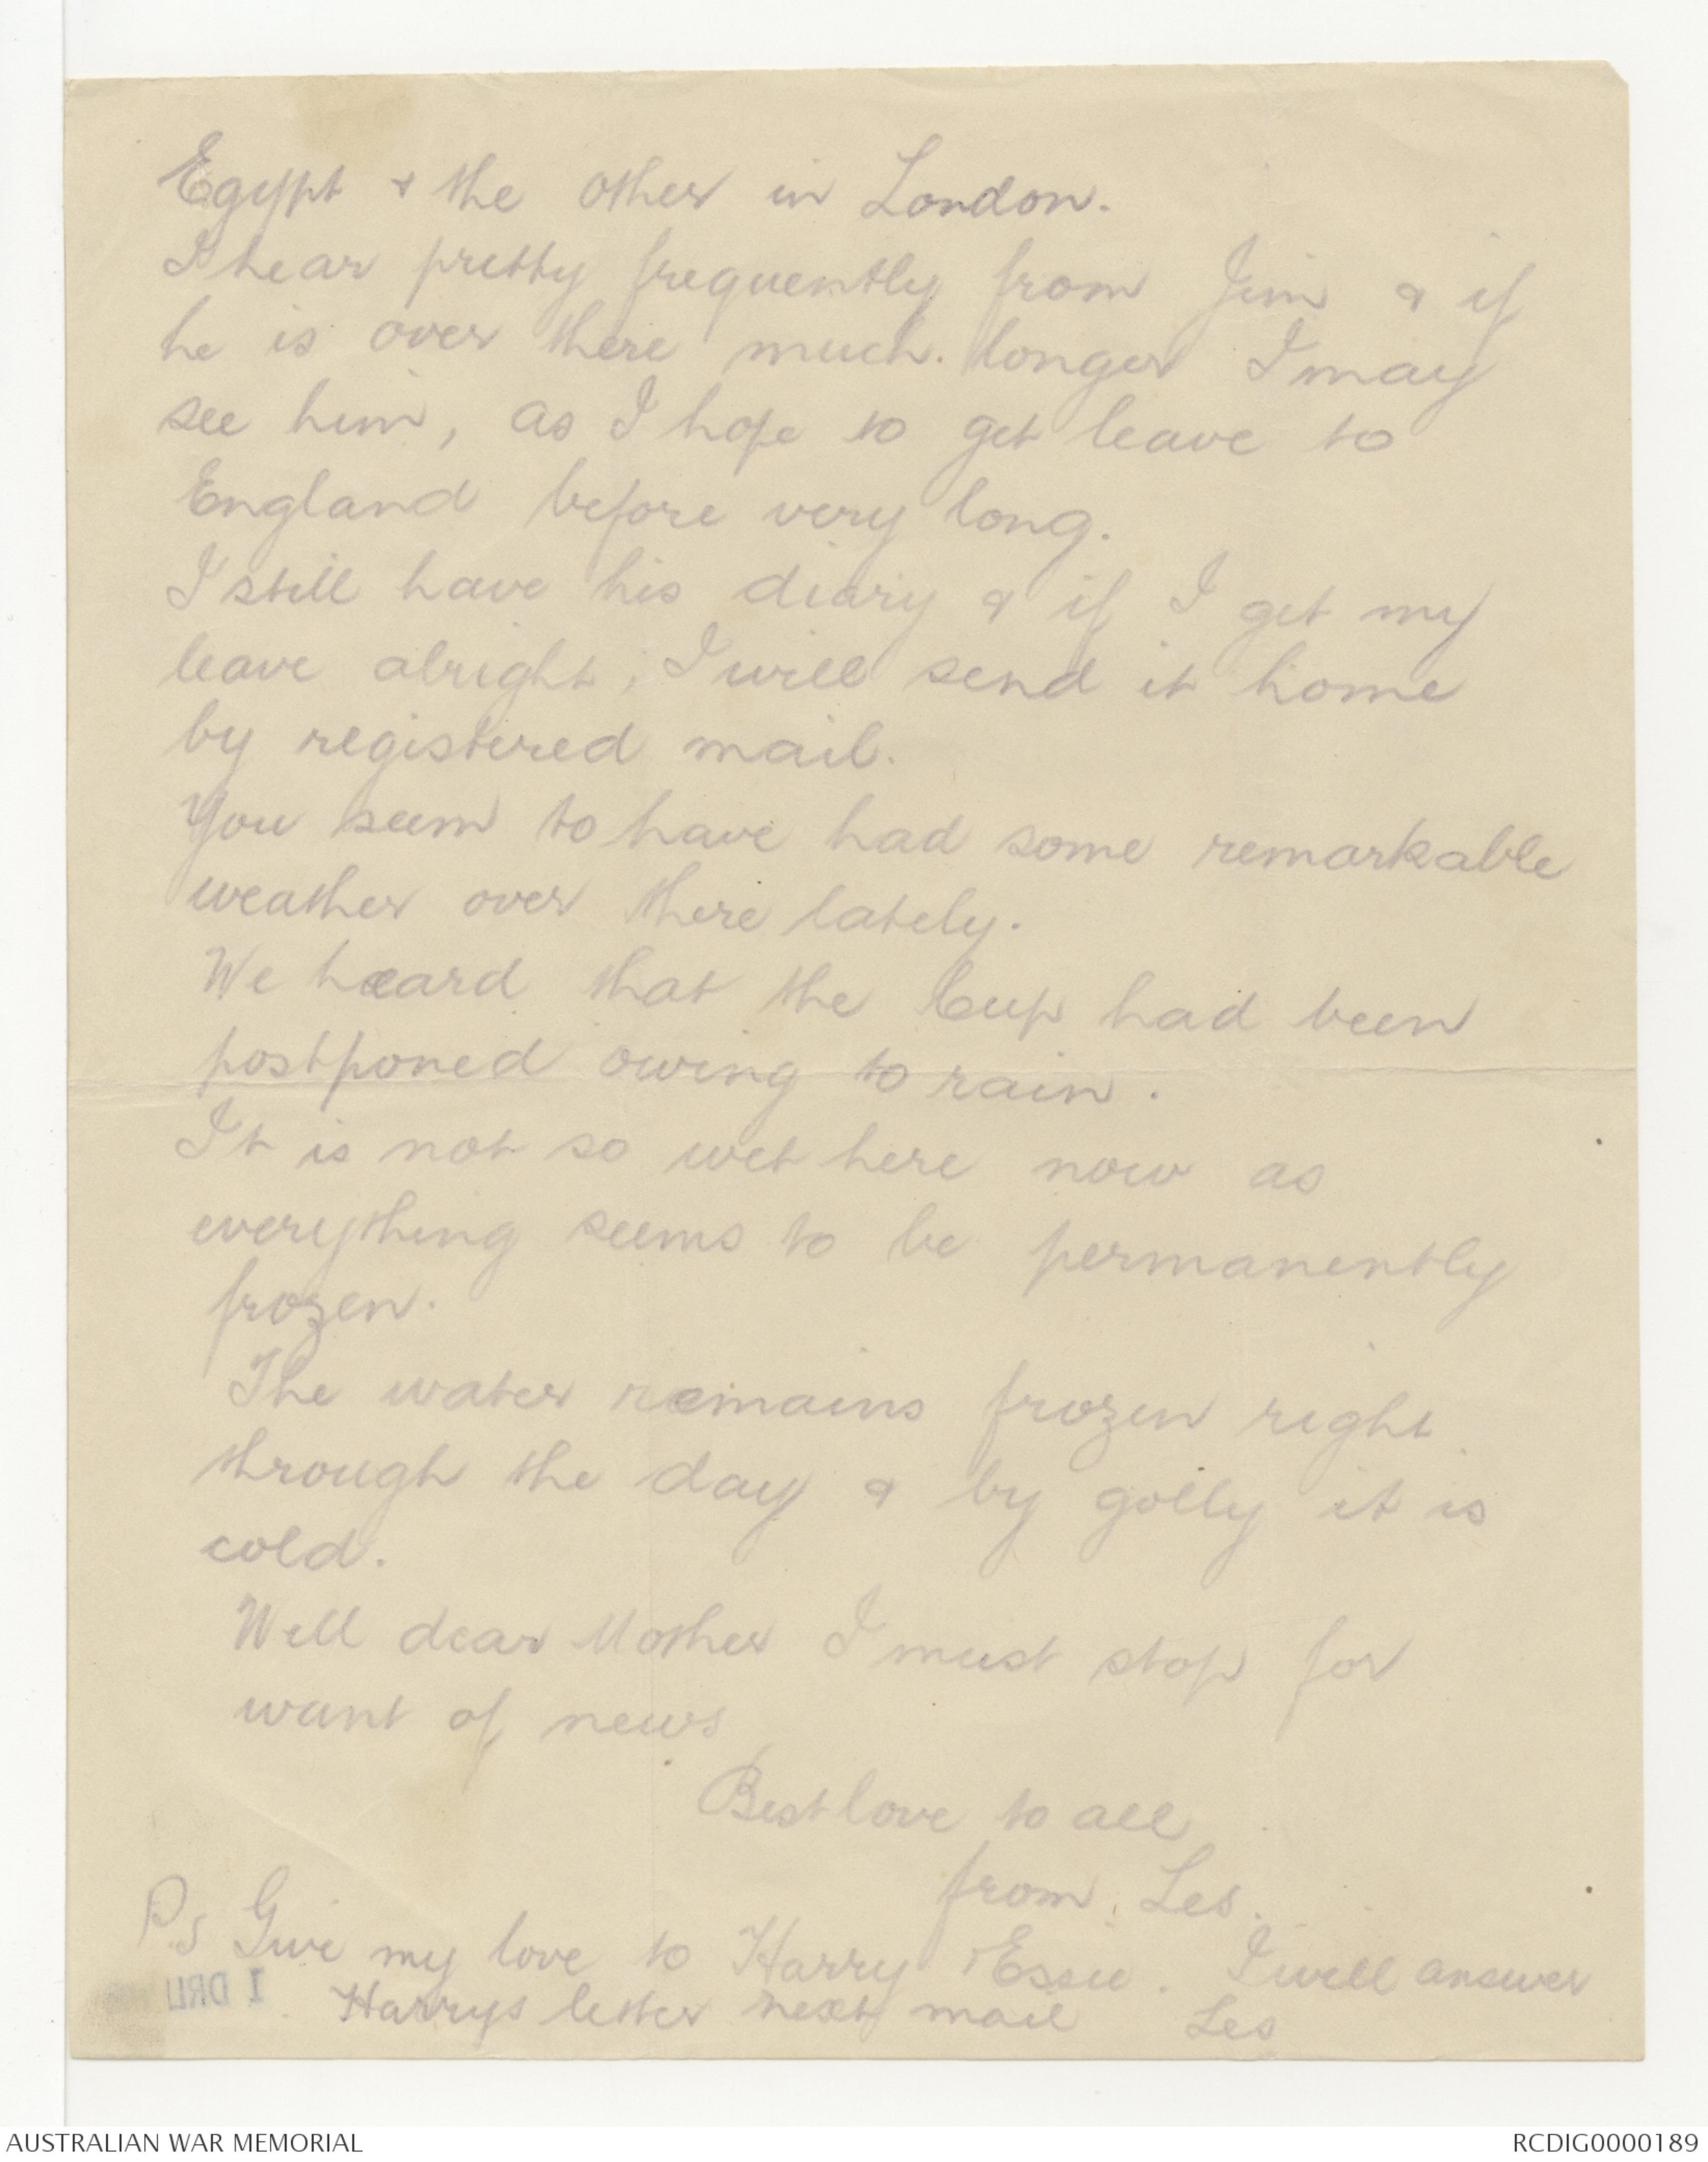 Egypt & the other in London.
I hear pretty frequently from Jim & if
he is over there much. longer I may
see him, as I hope to get leave to
England before very long.
I still have his diary & if I get my
leave alright, I will send it home
by registered mail.
You seem to have had some remarkable
weather over there lately.
We heard that the Cup had been
postponed owing to rain.
It is not so wet here now as
everything seems to be permanently
frozen.
The water remains frozen right
through the day & by golly it is
cold.
Well dear Mother I must stop for
want of news
Best love to all
from Les.
Ps Give my love to Harry & Essie. I will answer
Harrys letter next mail Les
1 DRL
AUSTRALIAN WAR MEMORIAL
RCDIG0000189